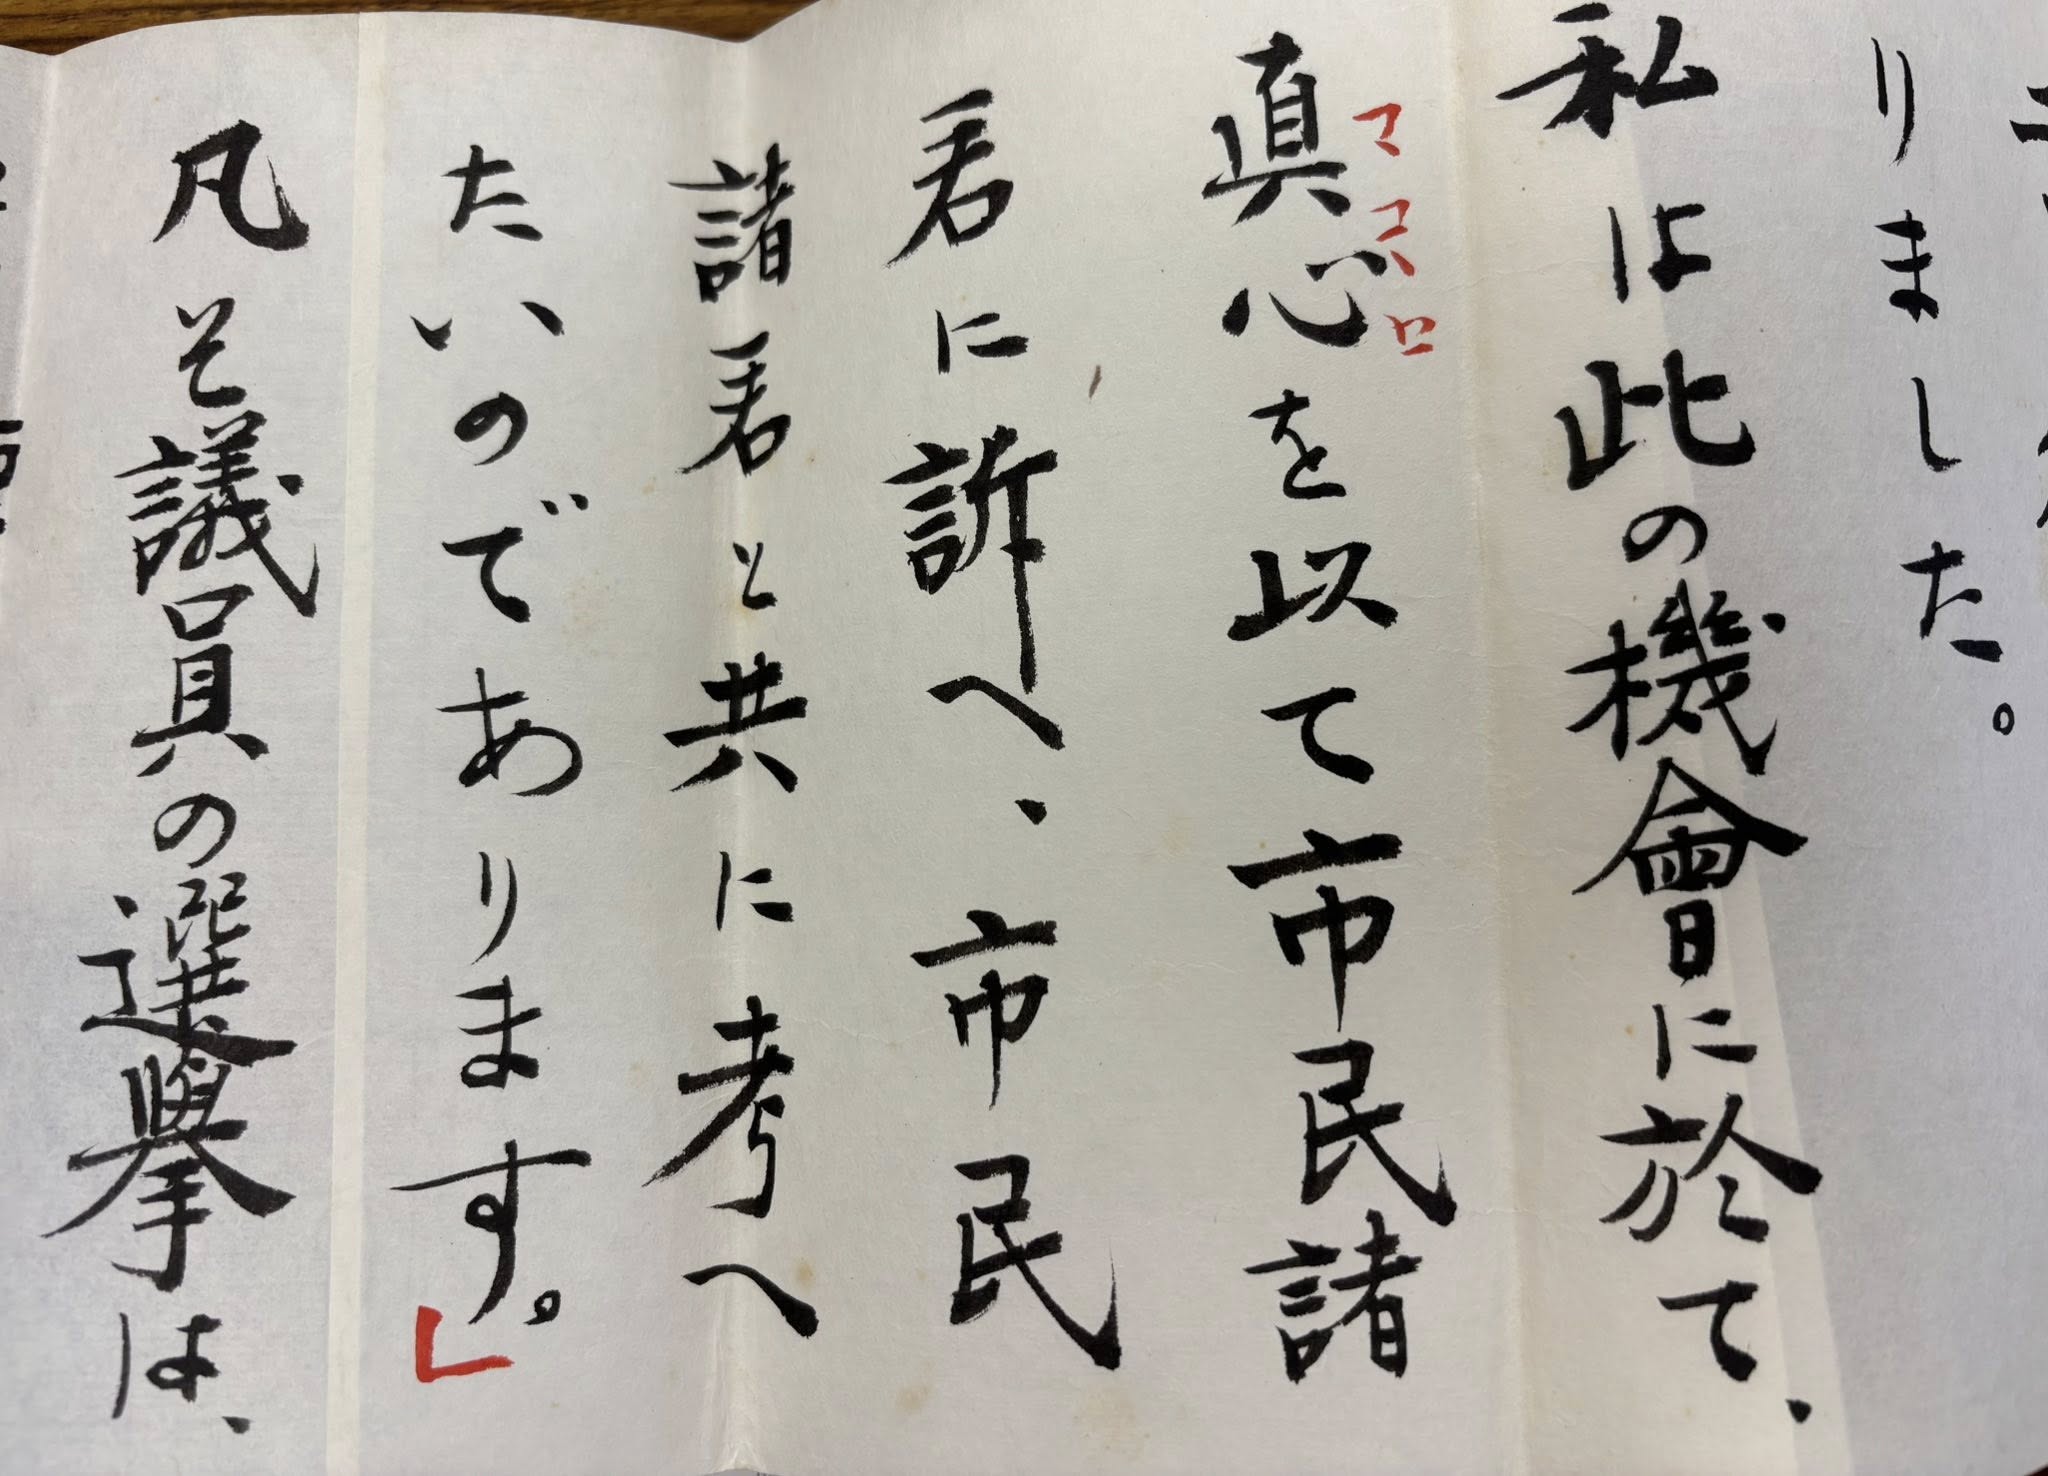 りました。
私は此の機會に於て、
眞心を以て市民諸
マコヽロ
君に訴へ、市民
諸君と共に考へ
たいのであります。」
凡そ議員の選擧は、